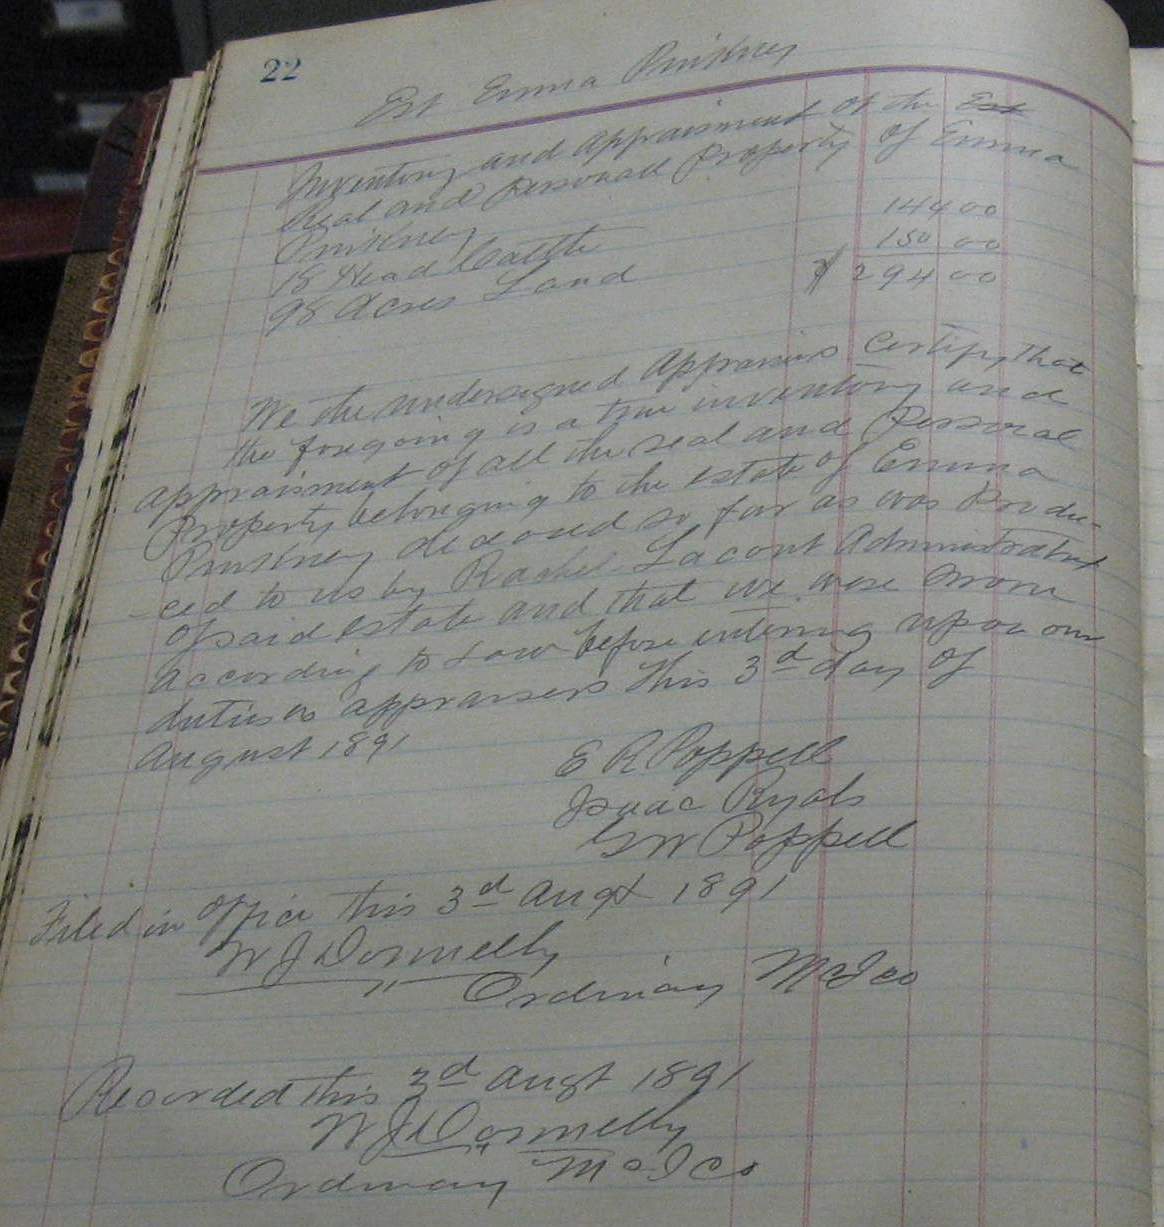 22
Est Emma Pinkney
Inventory and appraisment of the Est
Real and Personall Property of Emma
Pinkney
18 Head Cattle 144 00
98 Acres Land 150 00
$ 294 00
We the undersigned Appraisers Certify that
the foregoing is a true inventory and
appraisment of all the real and Personal
Property belonging to the estate of Emma
Pinkney deceased so far as was Produ-
-ced to us by Rachel Lacont Administratrix
of said estate and that we were sworn
according to Law before entering upon our
duties as appraisers this 3d day of
August 1891
E R Poppell
Isaac Ryals
G W Poppell
Filed in office this 3d Augt 1891
W J Donnelly
Ordinary McI Co
Recorded this 3d Augt 1891
W J Donnelly
Ordinary McI Co